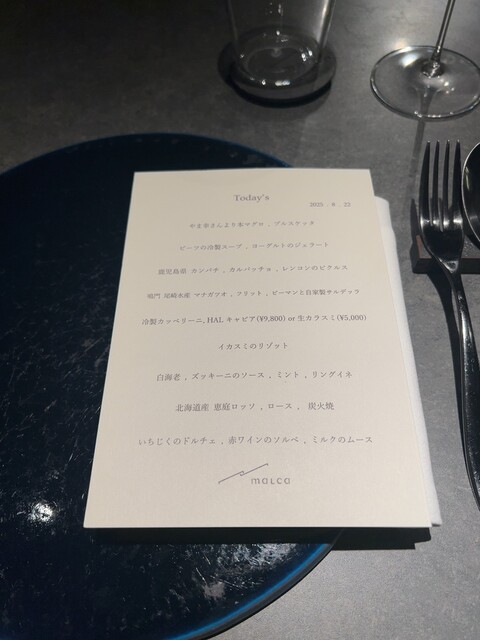 Today's
2025 . 8 . 22
やま幸さんより本マグロ , ブルスケッタ
ビーツの冷製スープ , ヨーグルトのジェラート
鹿児島県 カンパチ , カルパッチョ , レンコンのピクルス
鳴門 尾崎水産 マナガツオ , フリット , ピーマンと自家製サルデッラ
冷製カッペリーニ、HAL キャビア(¥9,800) or 生カラスミ(¥5,000)
イカスミのリゾット
白海老 , ズッキーニのソース , ミント , リングイネ
北海道産 恵庭ロッソ , ロース , 炭火焼
いちじくのドルチェ , 赤ワインのソルベ , ミルクのムース
maLca